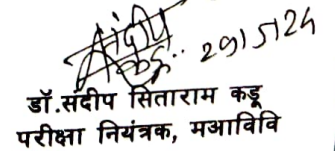 संदीप
कडू.. 29/5/24
डॉ.संदीप सिताराम कडू
परीक्षा नियंत्रक, मआविवि